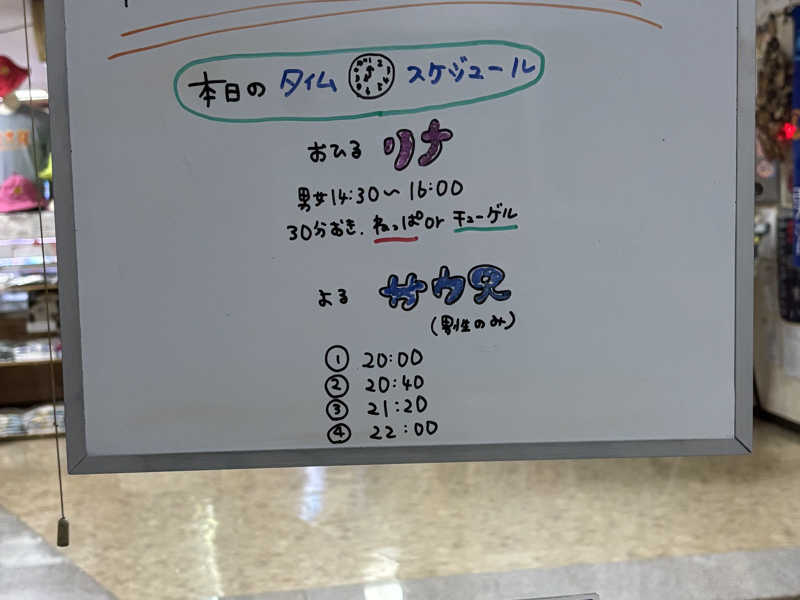 本日のタイムスケジュール
おひる リナ
男女14:30〜16:00
30分おき. ねっぱ or チューゲル
よる サウ兄
(男性のみ)
① 20:00
② 20:40
③ 21:20
④ 22:00